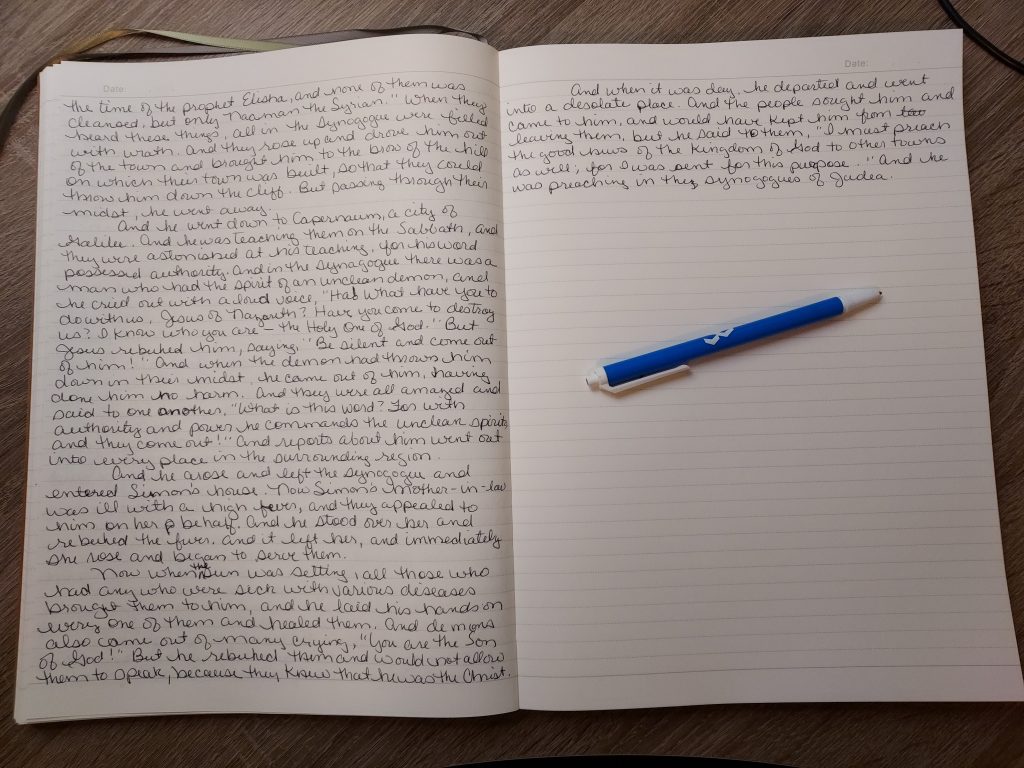 Date:
the time of the prophet Elisha, and none of them was
cleansed, but only Naaman the Syrian." When they
heard these things, all in the synagogue were filled
with wrath. And they rose up and drove him out
of the town and brought him to the brow of the hill
on which their town was built, so that they could
throw him down the cliff. But passing through their
midst, he went away.
And he went down to Capernaum, a city of
Galilee. And he was teaching them on the Sabbath, and
they were astonished at his teaching, for his word
possessed authority. And in the synagogue there was a
man who had the spirit of an unclean demon, and
he cried out with a loud voice, "Ha! What have you to
do with us, Jesus of Nazareth? Have you come to destroy
us? I know who you are – the Holy One of God." But
Jesus rebuked him, saying, "Be silent and come out
of him!" And when the demon had thrown him
down in their midst, he came out of him, having
done him no harm. And they were all amazed and
said to one another, "What is this word? For with
authority and power he commands the unclean spirits,
and they come out!" And reports about him went out
into every place in the surrounding region.
And he arose and left the synagogue and
entered Simon's house. Now Simon's mother-in-law
was ill with a high fever, and they appealed to
him on her behalf. And he stood over her and
rebuked the fever, and it left her, and immediately
she rose and began to serve them.
Now when the sun was setting, all those who
had any who were sick with various diseases
brought them to him, and he laid his hands on
every one of them and healed them. And demons
also came out of many crying, "You are the Son
of God!" But he rebuked them and would not allow
them to speak, because they knew that he was the Christ.
Date:
And when it was day, he departed and went
into a desolate place. And the people sought him and
came to him, and would have kept him from
leaving them, but he said to them, "I must preach
the good news of the Kingdom of God to other towns
as well; for I was sent for this purpose." And he
was preaching in the synagogues of Judea.